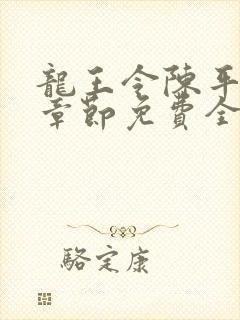 龍王令陳平
章節免費全
駱定康